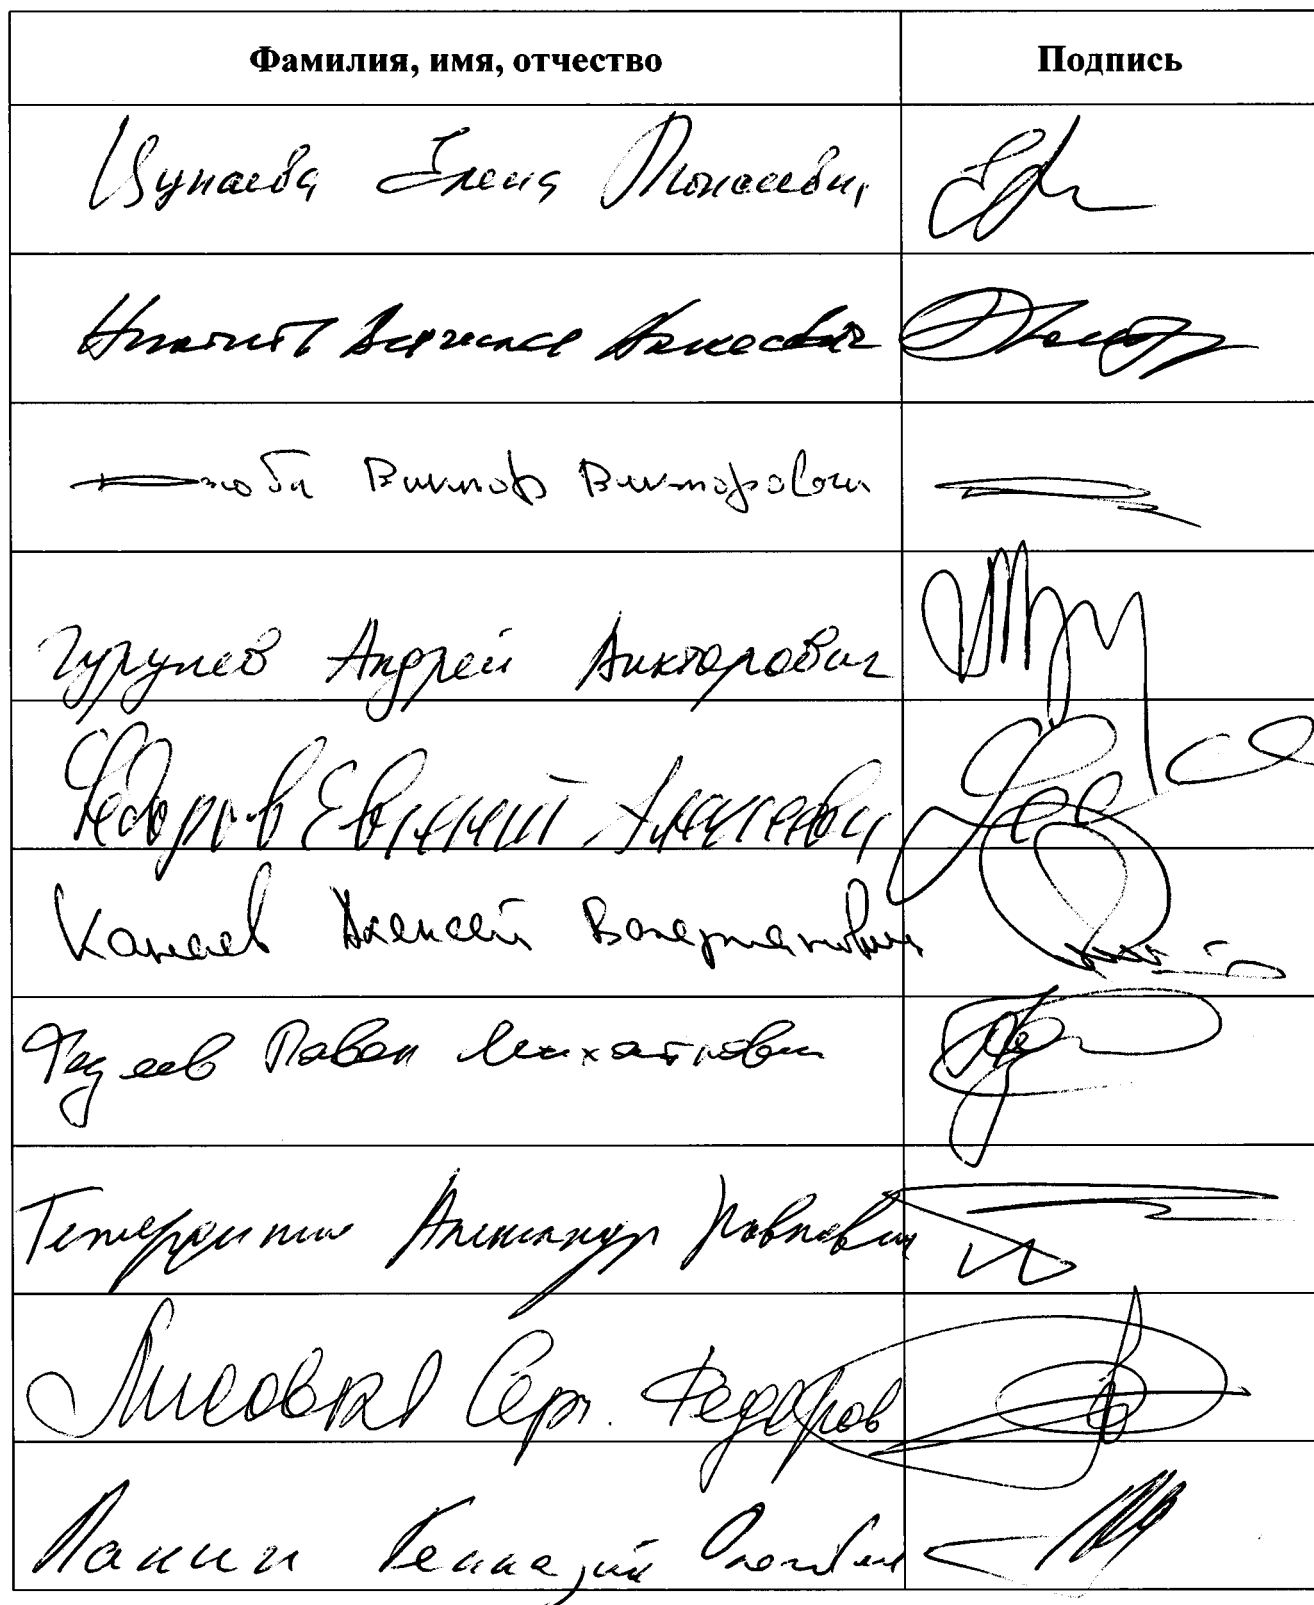 Фамилия, имя, отчество Подпись
Цунаева Елена Моисеевна
Никитин Вячеслав Алексеевич
Дзюба Виктор Викторович
Гурулев Андрей Викторович
Федоров Евгений Алексеевич
Канаев Алексей Валерианович
Федяев Павел Михайлович
Тетердинко Александр Павлович
Лисовский Серг. Федоров
Панин Геннадий Олегович